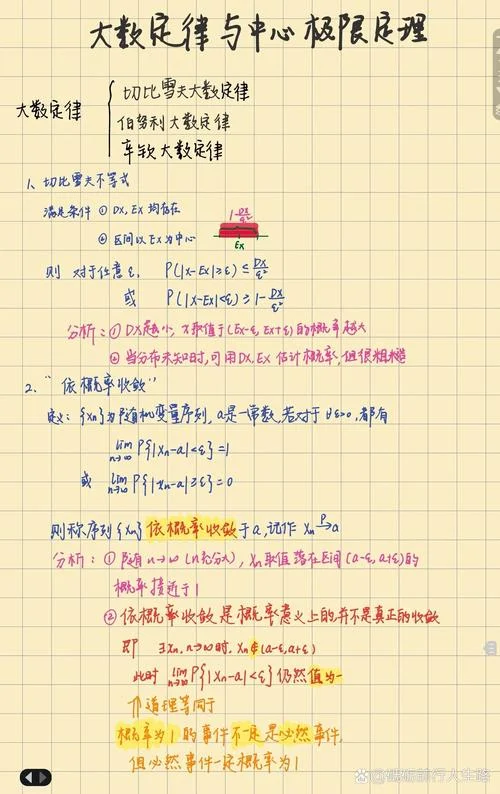 大数定律与中心极限定理
大数定律
切比雪夫大数定律
伯努利大数定律
辛钦大数定律
1、切比雪夫不等式
满足条件 ① DX, EX 均存在
② 区间以EX为中心
1-DX/ε²
EX
则 对于任意ε, P(|X-EX|≥ε) ≤ DX/ε²
或 P(|X-EX|<ε) ≥ 1-DX/ε²
分析:① DX越小, X取值于(EX-ε, EX+ε)的概率越大
② 当分布未知时,可用DX, EX 估计概率,但很粗糙
2、"依概率收敛"
定义:{Xn}为随机变量序列, a是一常数, 若对于∀ε>0, 都有
lim n→∞ P{|Xn-a|<ε}=1
或 lim n→∞ P{|Xn-a|≥ε}=0
则称序列{Xn}依概率收敛于a, 记作 Xn P→ a
分析:① 随着n→∞ (n充分大), Xn取值落在区间(a-ε, a+ε)的
概率接近于1
② 依概率收敛是概率意义上的,并不是真正的收敛
即 ∃Xn, n→∞时, Xn∉(a-ε, a+ε)
此时 lim n→∞ P{|Xn-a|<ε}仍然值为一
⇑道理等同于
概率为1的事件不一定是必然事件,
但必然事件一定概率为1
砥砺前行人生路